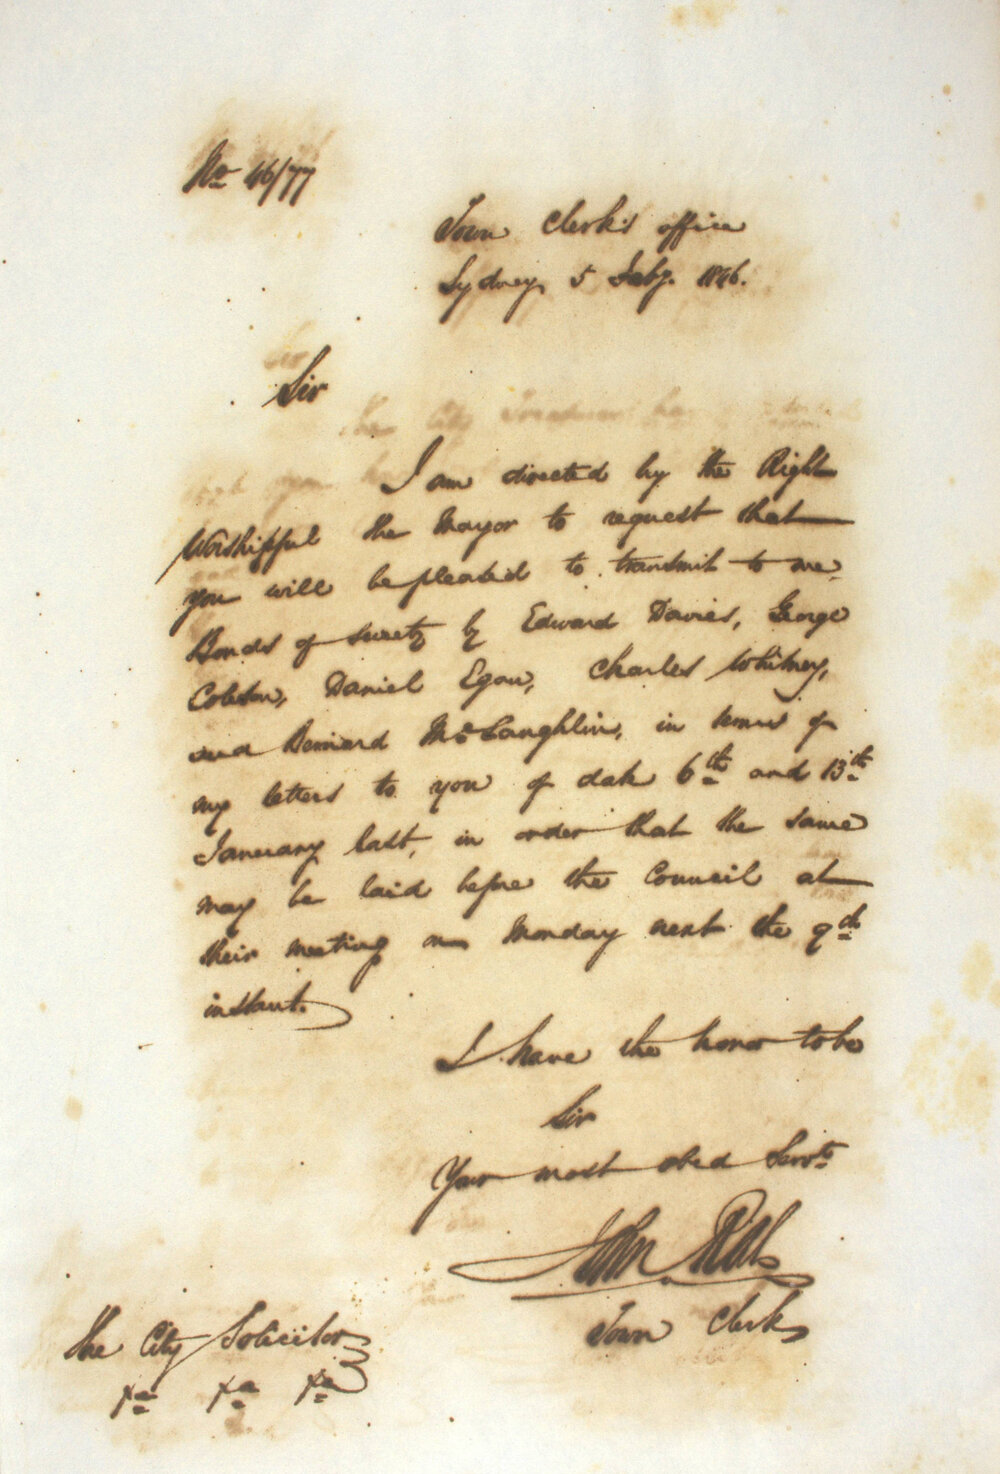 No 46/77
Town Clerk's office
Sydney, 5 Feby. 1846.
Sir
I am directed by the Right
Worshipful the Mayor to request that
you will be pleased to transmit to me
Bonds of surety by Edward Davies, George
Daniel Egan, Charles Whitney,
and Bernard McLaughlin, in terms of
my letters to you of date 6th and 13th
January last, in order that the same
may be laid before the Council at
their meeting on Monday next the 9th
instant.
I have the honor to be
Sir
Your most obed Servt
John
Town Clerk
The City Solicitor
&a &a &a